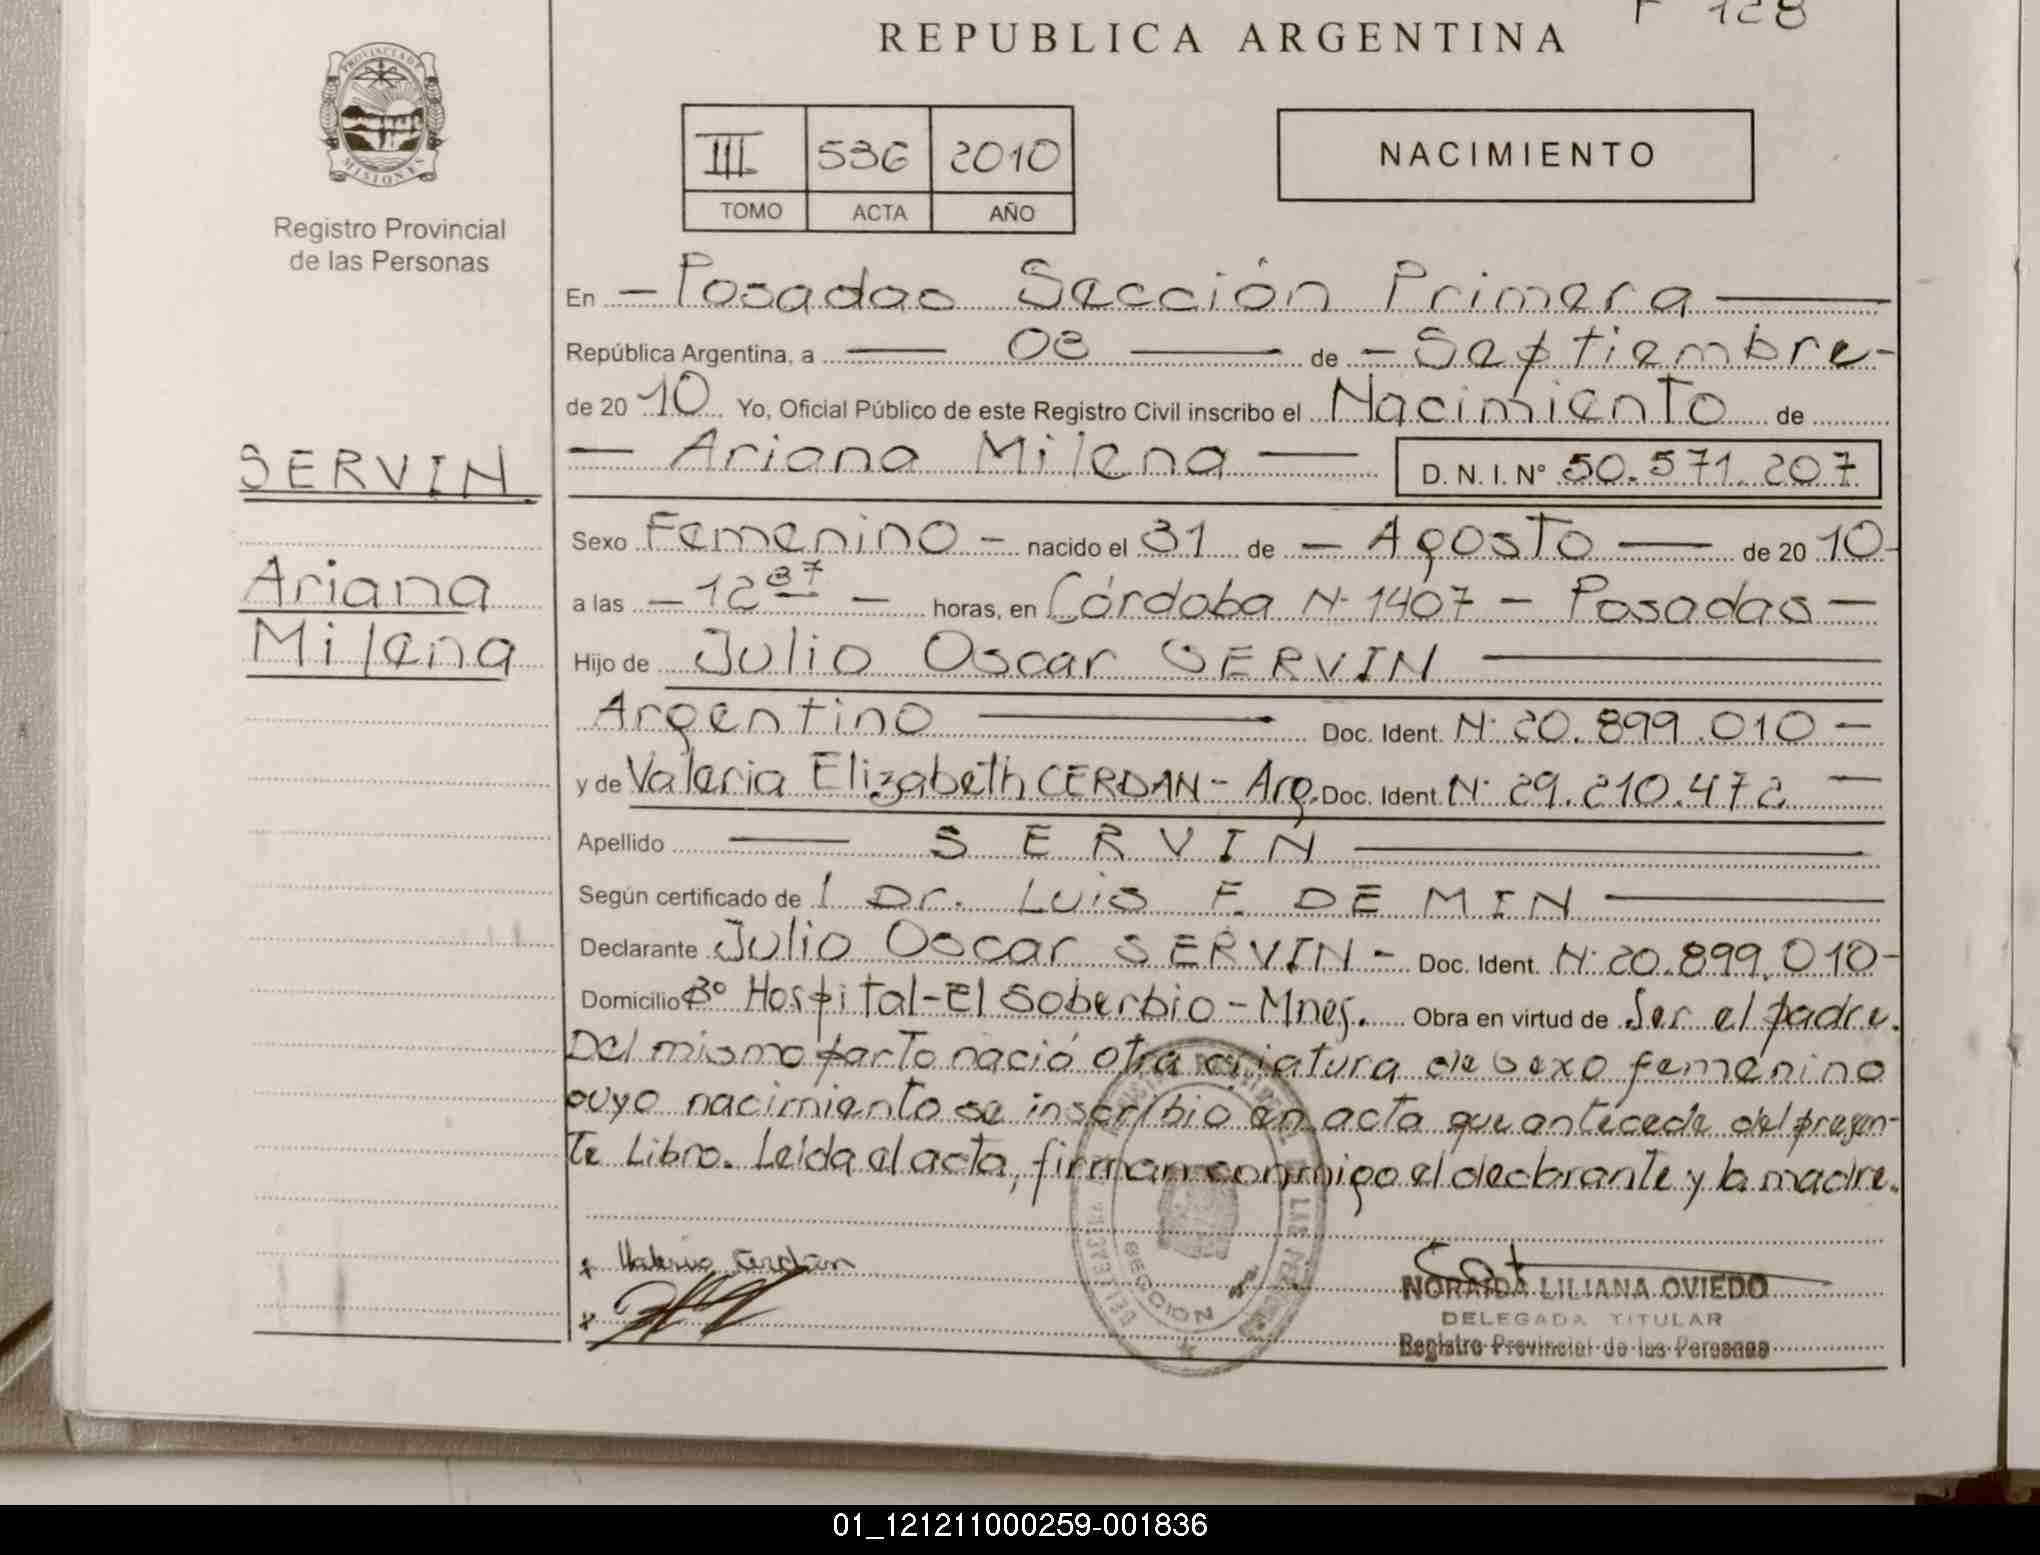 REPUBLICA ARGENTINA
F 128
PROVINCIA DE MISIONES
Registro Provincial
de las Personas
III 536 2010
TOMO ACTA AÑO
NACIMIENTO
En — Posadas Sección Primera —
República Argentina, a — 08 — de — Septiembre -
de 20 10 Yo, Oficial Público de este Registro Civil inscribo el Nacimiento de
— Ariana Milena — D. N. I. N° 50.571.207
SERVIN
Ariana
Milena
Sexo Femenino - nacido el 31 de — Agosto — de 20 10-
a las — 12 37 — horas, en Córdoba N· 1407 - Posadas —
Hijo de Julio Oscar SERVIN —
Argentino — Doc. Ident. N· 20.899.010 —
y de Valeria Elizabeth CERDAN - Arg. Doc. Ident. N· 29.210.472 —
Apellido — SERVIN —
Según certificado de l Dr. Luis F. DE MIN —
Declarante Julio Oscar SERVIN - Doc. Ident. N· 20.899.010-
Domicilio B° Hospital-El Soberbio - Mnes. Obra en virtud de Ser el padre.
Del mismo parto nació otra criatura de sexo femenino
cuyo nacimiento se inscribio en acta que antecede del presen-
te Libro. Leida el acta, firman conmigo el declarante y la madre.
x Valeria Cerdan
x
SECCION
NORAIDA LILIANA OVIEDO
DELEGADA TITULAR
Registro Provincial de las Personas
01_121211000259-001836